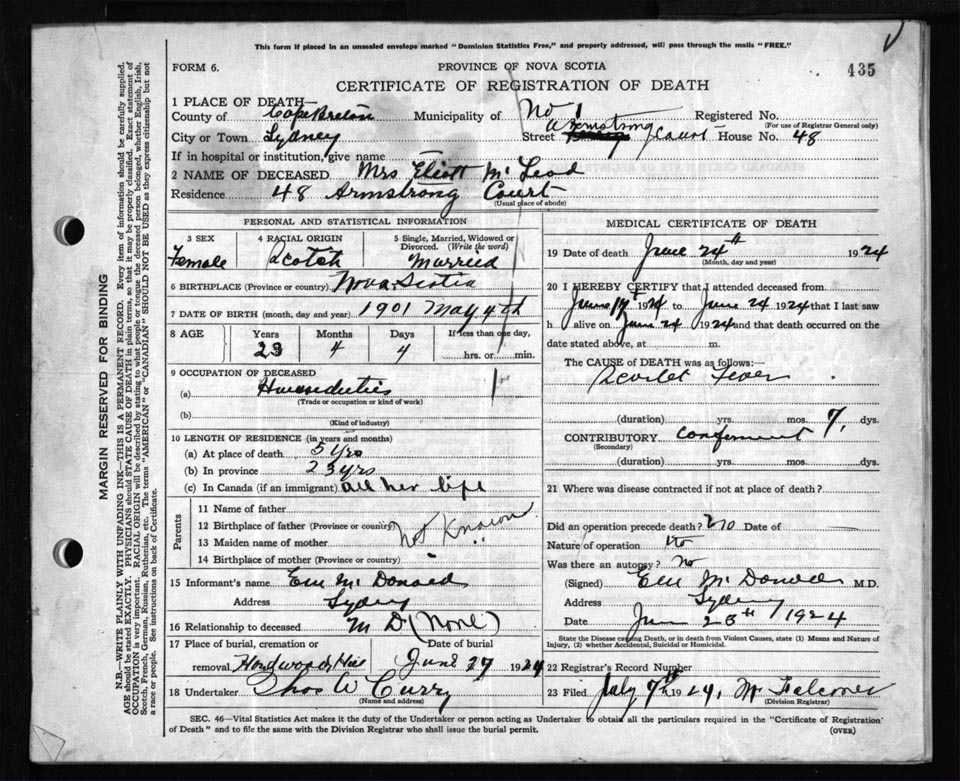 This form if placed in an unsealed envelope marked "Dominion Statistics Free," and properly addressed, will pass through the mails "FREE."
FORM 6.
PROVINCE OF NOVA SCOTIA
435
CERTIFICATE OF REGISTRATION OF DEATH
1 PLACE OF DEATH—
County of Cape Breton Municipality of No 1 Registered No.
(For use of Registrar General only)
City or Town Sydney Street Armstrong Court House No. 48
If in hospital or institution, give name
2 NAME OF DECEASED Mrs Eliott Mc Leod
Residence 48 Armstrong Court
(Usual place of abode)
PERSONAL AND STATISTICAL INFORMATION
3 SEX 4 RACIAL ORIGIN 5 Single, Married, Widowed or Divorced. (Write the word)
Female Scotch Married
6 BIRTHPLACE (Province or country) Nova Scotia
7 DATE OF BIRTH (month, day and year) 1901 May 4th
8 AGE Years Months Days If less than one day,
23 4 4 hrs. or min.
9 OCCUPATION OF DECEASED
(a)
(Trade or occupation or kind of work)
(b)
(Kind of industry)
10 LENGTH OF RESIDENCE (in years and months)
(a) At place of death 5 yrs
(b) In province 23 yrs
(c) In Canada (if an immigrant) all her life
Parents
11 Name of father
12 Birthplace of father (Province or country) Not Known
13 Maiden name of mother "
14 Birthplace of mother (Province or country)
15 Informant's name Mc Donald
Address Sydney
16 Relationship to deceased M D (None)
17 Place of burial, cremation or Date of burial
removal Hardwood Hill June 27 1924
18 Undertaker Thos W Curry
(Name and address)
MEDICAL CERTIFICATE OF DEATH
19 Date of death June 24th 1924
(Month, day and year)
20 I HEREBY CERTIFY that I attended deceased from
June 17 1924 to June 24 1924 that I last saw
h alive on June 24 1924 and that death occurred on the
date stated above, at m.
The CAUSE of DEATH was as follows:—
Scarlet Fever
(duration) yrs. mos. 7. dys.
CONTRIBUTORY confinement
(Secondary)
(duration) yrs. mos. dys.
21 Where was disease contracted if not at place of death?
Did an operation precede death? No Date of
Nature of operation no
Was there an autopsy? No
(Signed) Mc Donald M.D.
Address Sydney
Date June 25th 1924
State the Disease causing Death, or in death from Violent Causes, state (1) Means and Nature of Injury, (2) whether Accidental, Suicidal or Homicidal.
22 Registrar's Record Number
23 Filed July 7th 1924, Mc Falconer
(Division Registrar)
SEC. 46—Vital Statistics Act makes it the duty of the Undertaker or person acting as Undertaker to obtain all the particulars required in the "Certificate of Registration
of Death" and to file the same with the Division Registrar who shall issue the burial permit.
(OVER)
MARGIN RESERVED FOR BINDING
N.B.—WRITE PLAINLY WITH UNFADING INK—THIS IS A PERMANENT RECORD. Every item of information should be carefully supplied.
AGE should be stated EXACTLY. PHYSICIANS should STATE CAUSE OF DEATH in plain terms, so that it may be properly classified. Exact statement of
OCCUPATION is very important. RACIAL ORIGIN will be described by stating to what people or tongue the deceased person belonged, whether English, Irish,
Scotch, French, German, Russian, Ruthenian, etc. The terms "AMERICAN" or "CANADIAN" SHOULD NOT BE USED as they express citizenship but not
a race or people. See instructions on back of Certificate.